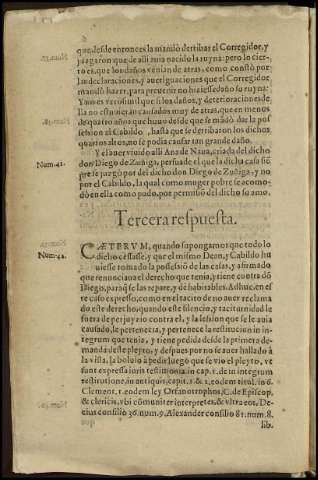 que, desde entonces la mãdò derribar el Corregidor, y
juzgaron que de alli auia nacido la ruyna: pero lo cier-
to es, que los daños venian de atras, como constò por
las declaraciones, y aueriguaciones que el Corregidor
mandò hazer, para preuenir no hiziesse daño su ruyna:
Y mas es verosimil que si los daños, y deterioraciones de
lla no estuuieran causados muy de atras, que en menos
de quatro años que huuo desde que se mãdò dar la pos
session al Cabildo, hasta que se derribaron los dichos
quartos altos, no se podia causar tan grande daño.
Num.41. Y el auer viuido alli Ana de Naua, criada del dicho
don Diego de Zuñiga, persuade el que la dicha casa siẽ
pre se juzgò por del dicho don Diego de Zuñiga, y no
por el Cabildo, la qual como muger pobre se acomo-
dò en ella como pudo, por permisso del dicho su amo.
Tercera respuesta.
Num.42. CÆTERVM, quando supongamos que todo lo
dicho cessasse, y que el mismo Dean, y Cabildo hu
uiesse tomado la possessiõ de las casas, y afirmado
que renunciaua el derecho que tenia, y tiene contra dõ
Diego, para q̃ se las repare, y dè habitables. Adhuc, en es-
te caso expresso, como en el tacito de no auer reclama
do este derecho, quando este silencio, y taciturnidad le
fuera de perjuyzio contra el, y la lesion que se le auia
causado, le pertenecia, y pertenece la restitucion in in-
tegrum que tenia, y tiene pedida desde la primera de-
manda deste pleyto, y despues por no se auer hallado à
la vista, la boluio à pedir luego que se vio el pleyto, vt
sunt expressa iuris testimonia, in cap. 1. de in integrum
restitutione, in antiquis, capit. 1. & 2. eodem titul. in 6.
Clement. 1. eodem l. ley Orfanotrophos, C. de Episcop.
& clericis, vbi cõmuniter interpretes, & vltra eos, De-
cius consilio 36. num. 9. Alexander consilio 81. num. 8.
lib.